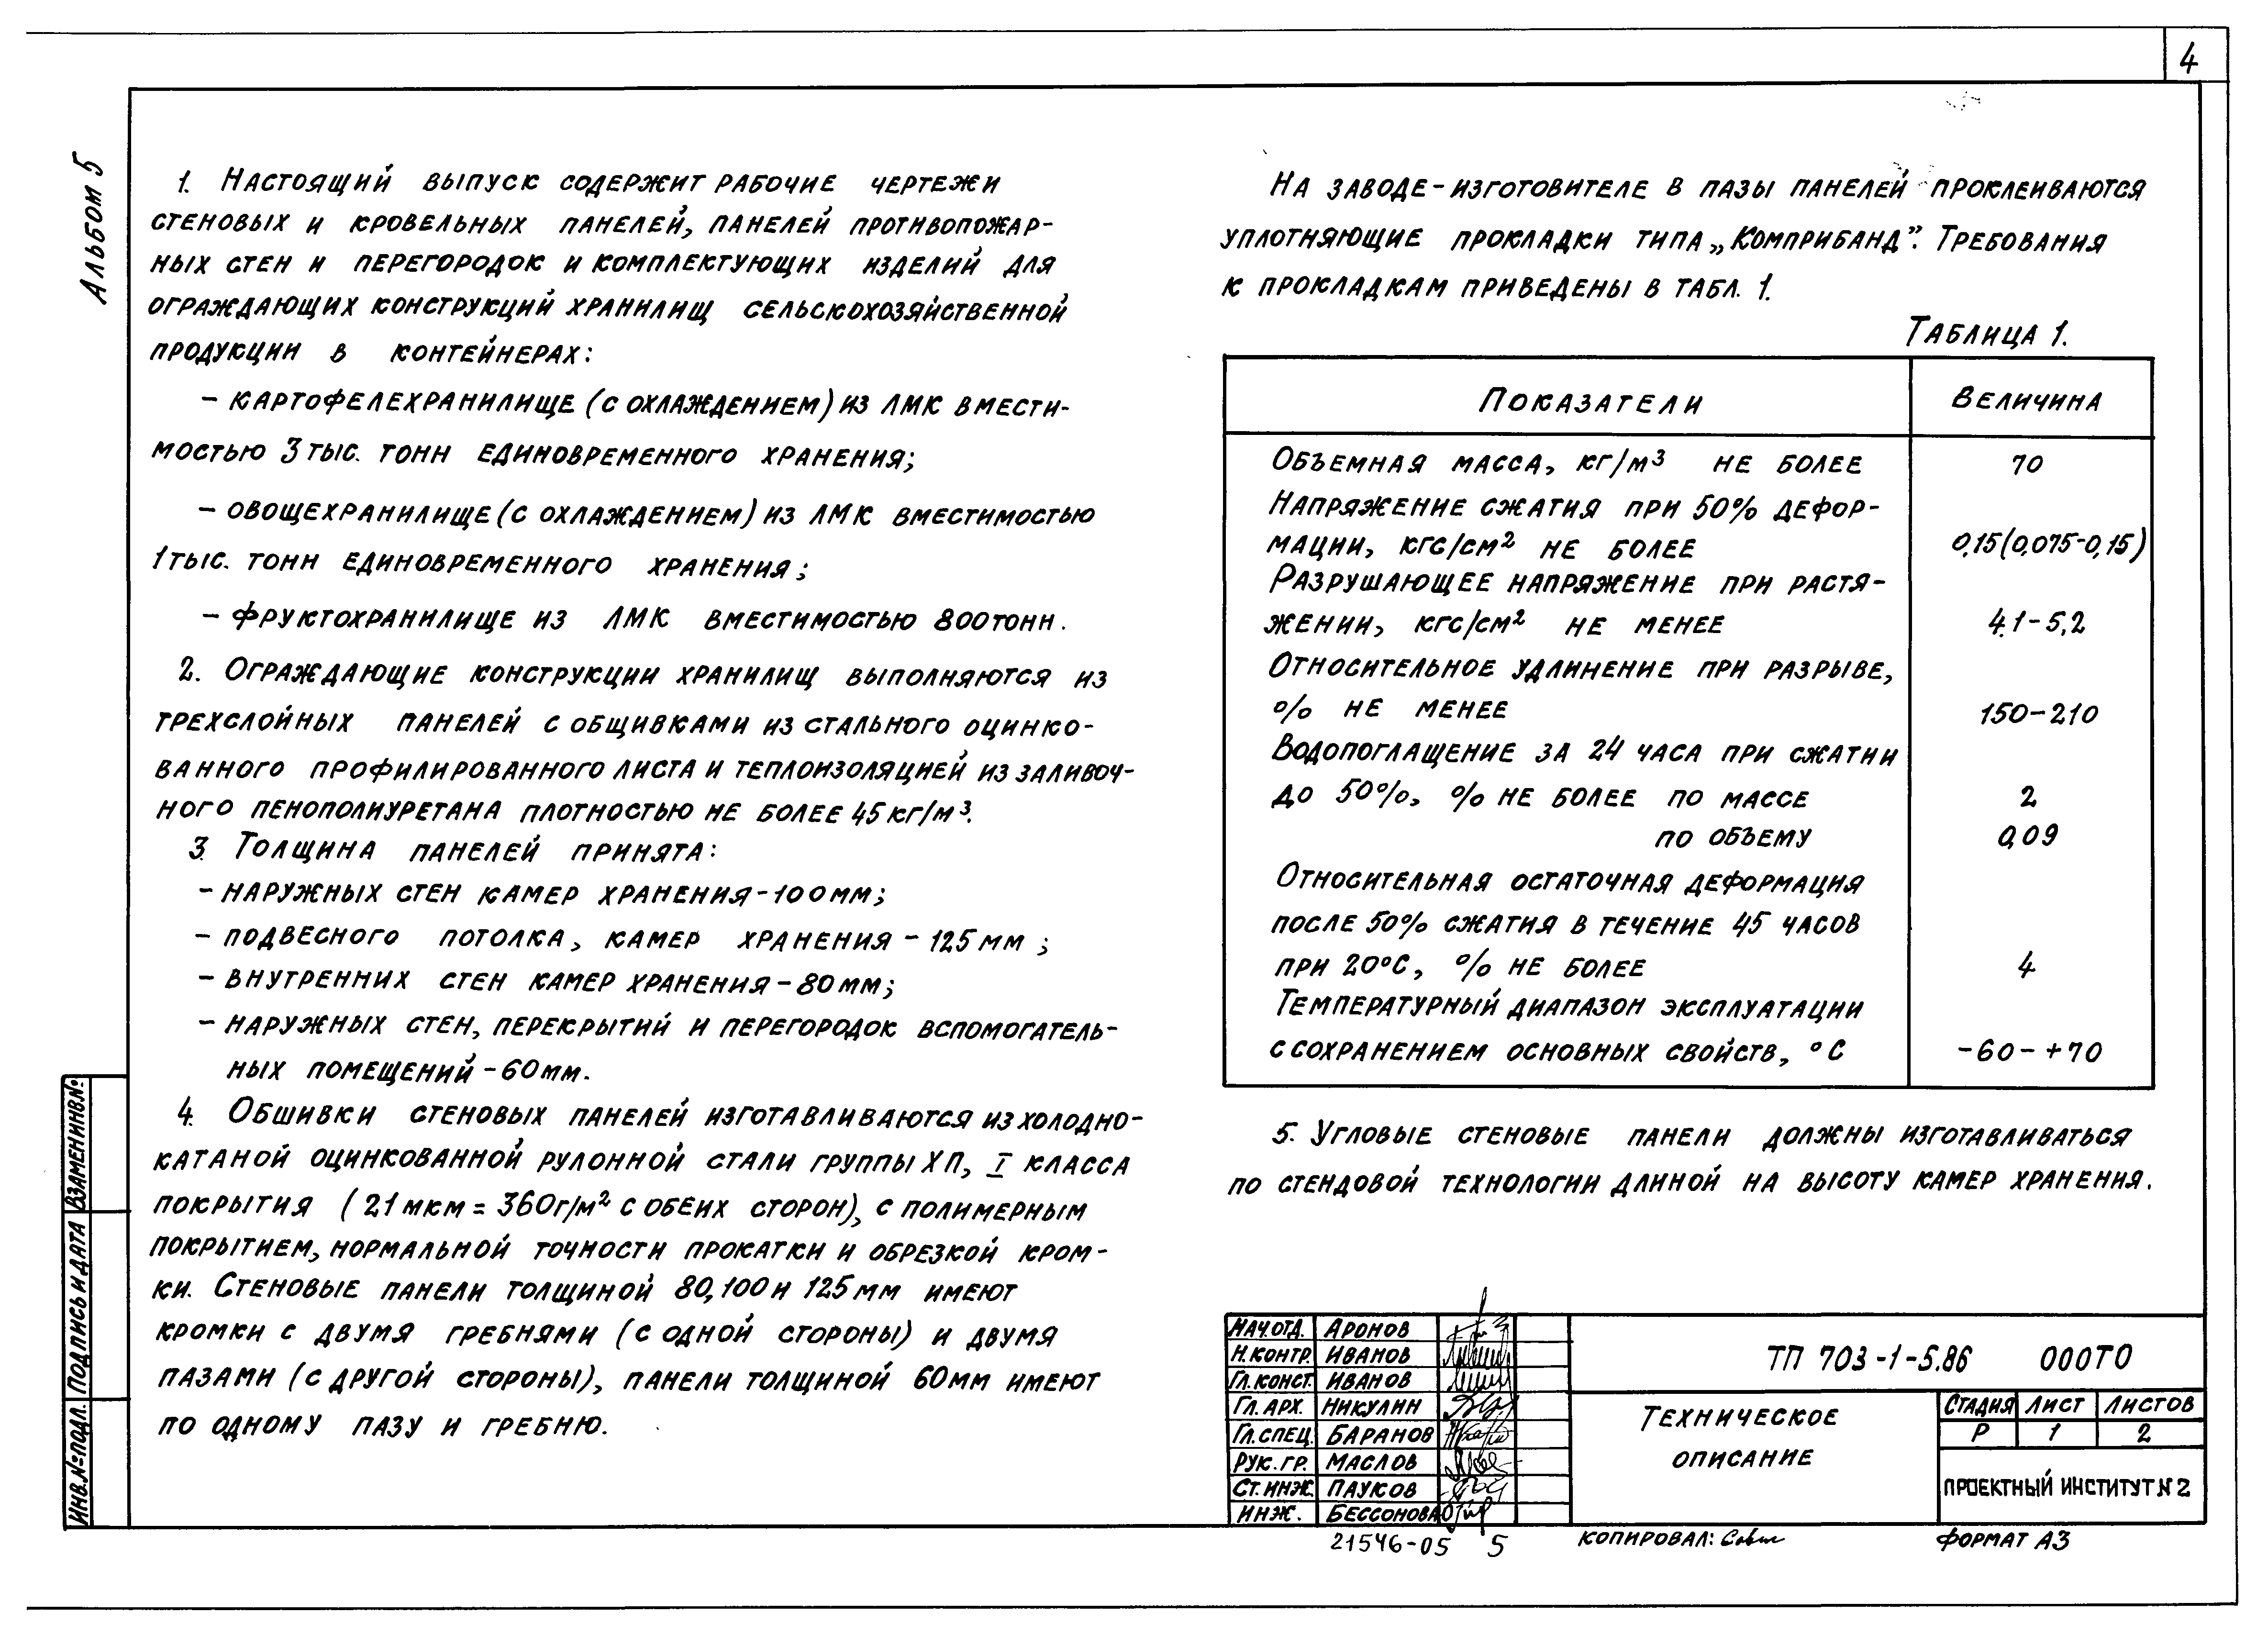 4
Альбом 5
1. Настоящий выпуск содержит рабочие чертежи
стеновых и кровельных панелей, панелей противопожар-
ных стен и перегородок и комплектующих изделий для
ограждающих конструкций хранилищ сельскохозяйственной
продукции в контейнерах:
- картофелехранилище (с охлаждением) из ЛМК вмести-
мостью 3 тыс. тонн единовременного хранения;
- овощехранилище (с охлаждением) из ЛМК вместимостью
1 тыс. тонн единовременного хранения;
- фруктохранилище из ЛМК вместимостью 800 тонн.
2. Ограждающие конструкции хранилищ выполняются из
трехслойных панелей с обшивками из стального оцинко-
ванного профилированного листа и теплоизоляцией из заливоч-
ного пенополиуретана плотностью не более 45 кг/м³.
3. Толщина панелей принята:
- наружных стен камер хранения - 100 мм;
- подвесного потолка, камер хранения - 125 мм;
- внутренних стен камер хранения - 80 мм;
- наружных стен, перекрытий и перегородок вспомогатель-
ных помещений - 60 мм.
4. Обшивки стеновых панелей изготавливаются из холодно-
катаной оцинкованной рулонной стали группы ХП, I класса
покрытия (21 мкм = 360 г/м² с обеих сторон), с полимерным
покрытием, нормальной точности прокатки и обрезкой кром-
ки. Стеновые панели толщиной 80, 100 и 125 мм имеют
кромки с двумя гребнями (с одной стороны) и двумя
пазами (с другой стороны), панели толщиной 60 мм имеют
по одному пазу и гребню.
На заводе-изготовителе в пазы панелей проклеиваются
уплотняющие прокладки типа „Комприбанд". Требования
к прокладкам приведены в табл. 1.
Таблица 1.
Показатели Величина
Объемная масса, кг/м³ не более 70
Напряжение сжатия при 50% дефор-
мации, кгс/см² не более 0,15 (0,075-0,15)
Разрушающее напряжение при растя-
жении, кгс/см² не менее 4.1-5,2
Относительное удлинение при разрыве,
% не менее 150-210
Водопоглащение за 24 часа при сжатии
до 50%, % не более по массе 2
по объему 0,09
Относительная остаточная деформация
после 50% сжатия в течение 45 часов
при 20°С, % не более 4
Температурный диапазон эксплуатации
с сохранением основных свойств, °С -60-+70
5. Угловые стеновые панели должны изготавливаться
по стендовой технологии длиной на высоту камер хранения.
Нач.отд. Аронов
Н.контр. Иванов
Гл.конст. Иванов
Гл.арх. Никулин
Гл.спец. Баранов
Рук.гр. Маслов
Ст.инж. Пауков
Инж. Бессонова
ТП 703-1-5.86 000ТО
Техническое
описание
Стадия Лист Листов
Р 1 2
Проектный институт №2
21546-05 5
Копировал:
Формат А3
Взамен инв.№:
Подпись и дата
Инв.№ подл.